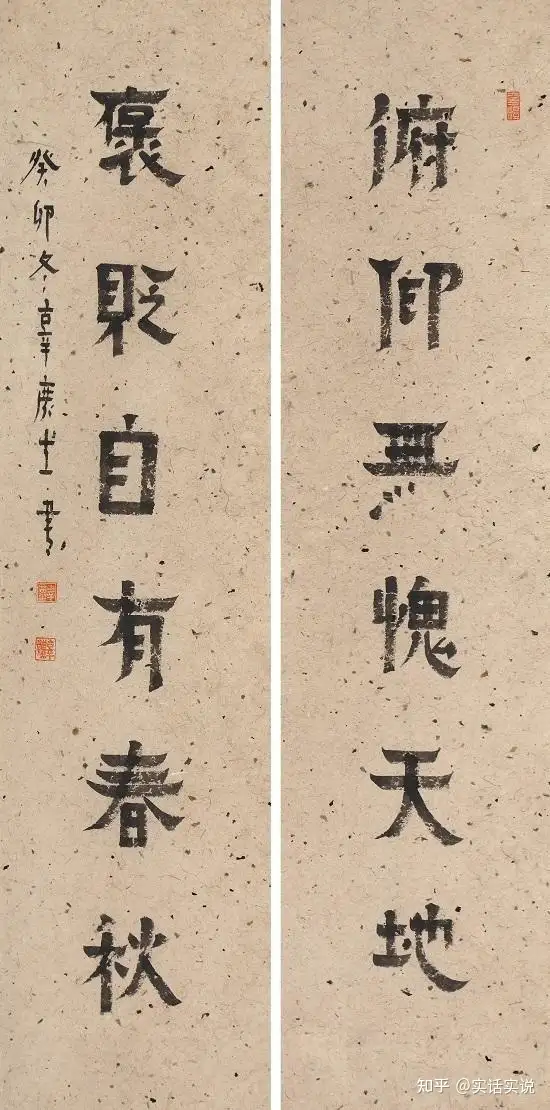 俯仰無愧天地
褒貶自有春秋
癸卯冬辛庚士書
知乎 @实话实说